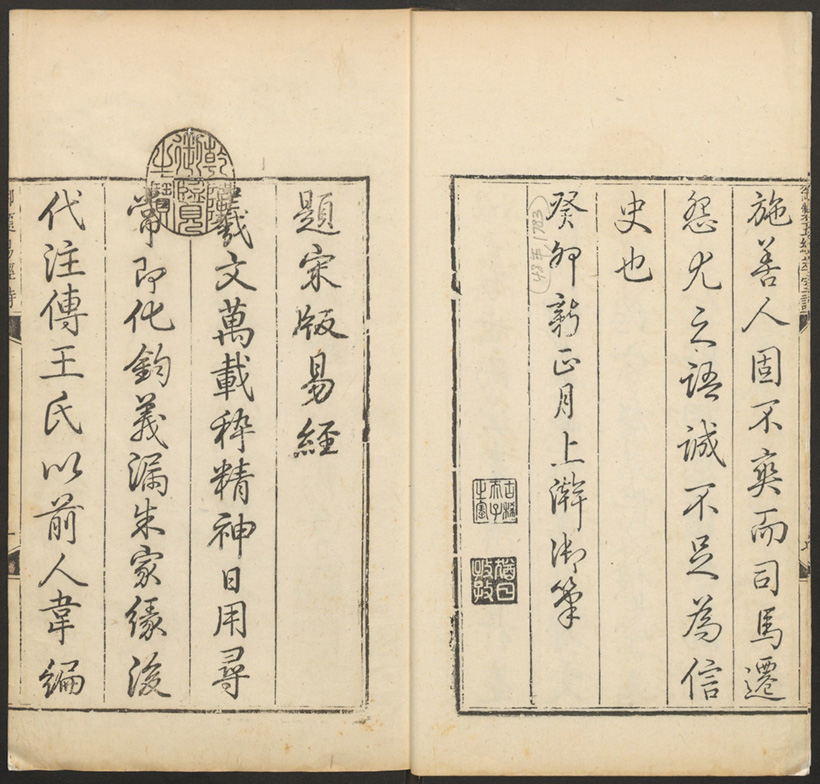 施善人固不爽而司馬遷
怨尤之語誠不足為信
史也
癸卯新正月上澣御筆
48年 1783
古稀天子之寶
猶日孜孜
乾隆御覽之寶
題宋版易經
羲文萬載稡精神日用尋
常即化鈞義漏朱家緣後
代注傳王氏以前人韋編